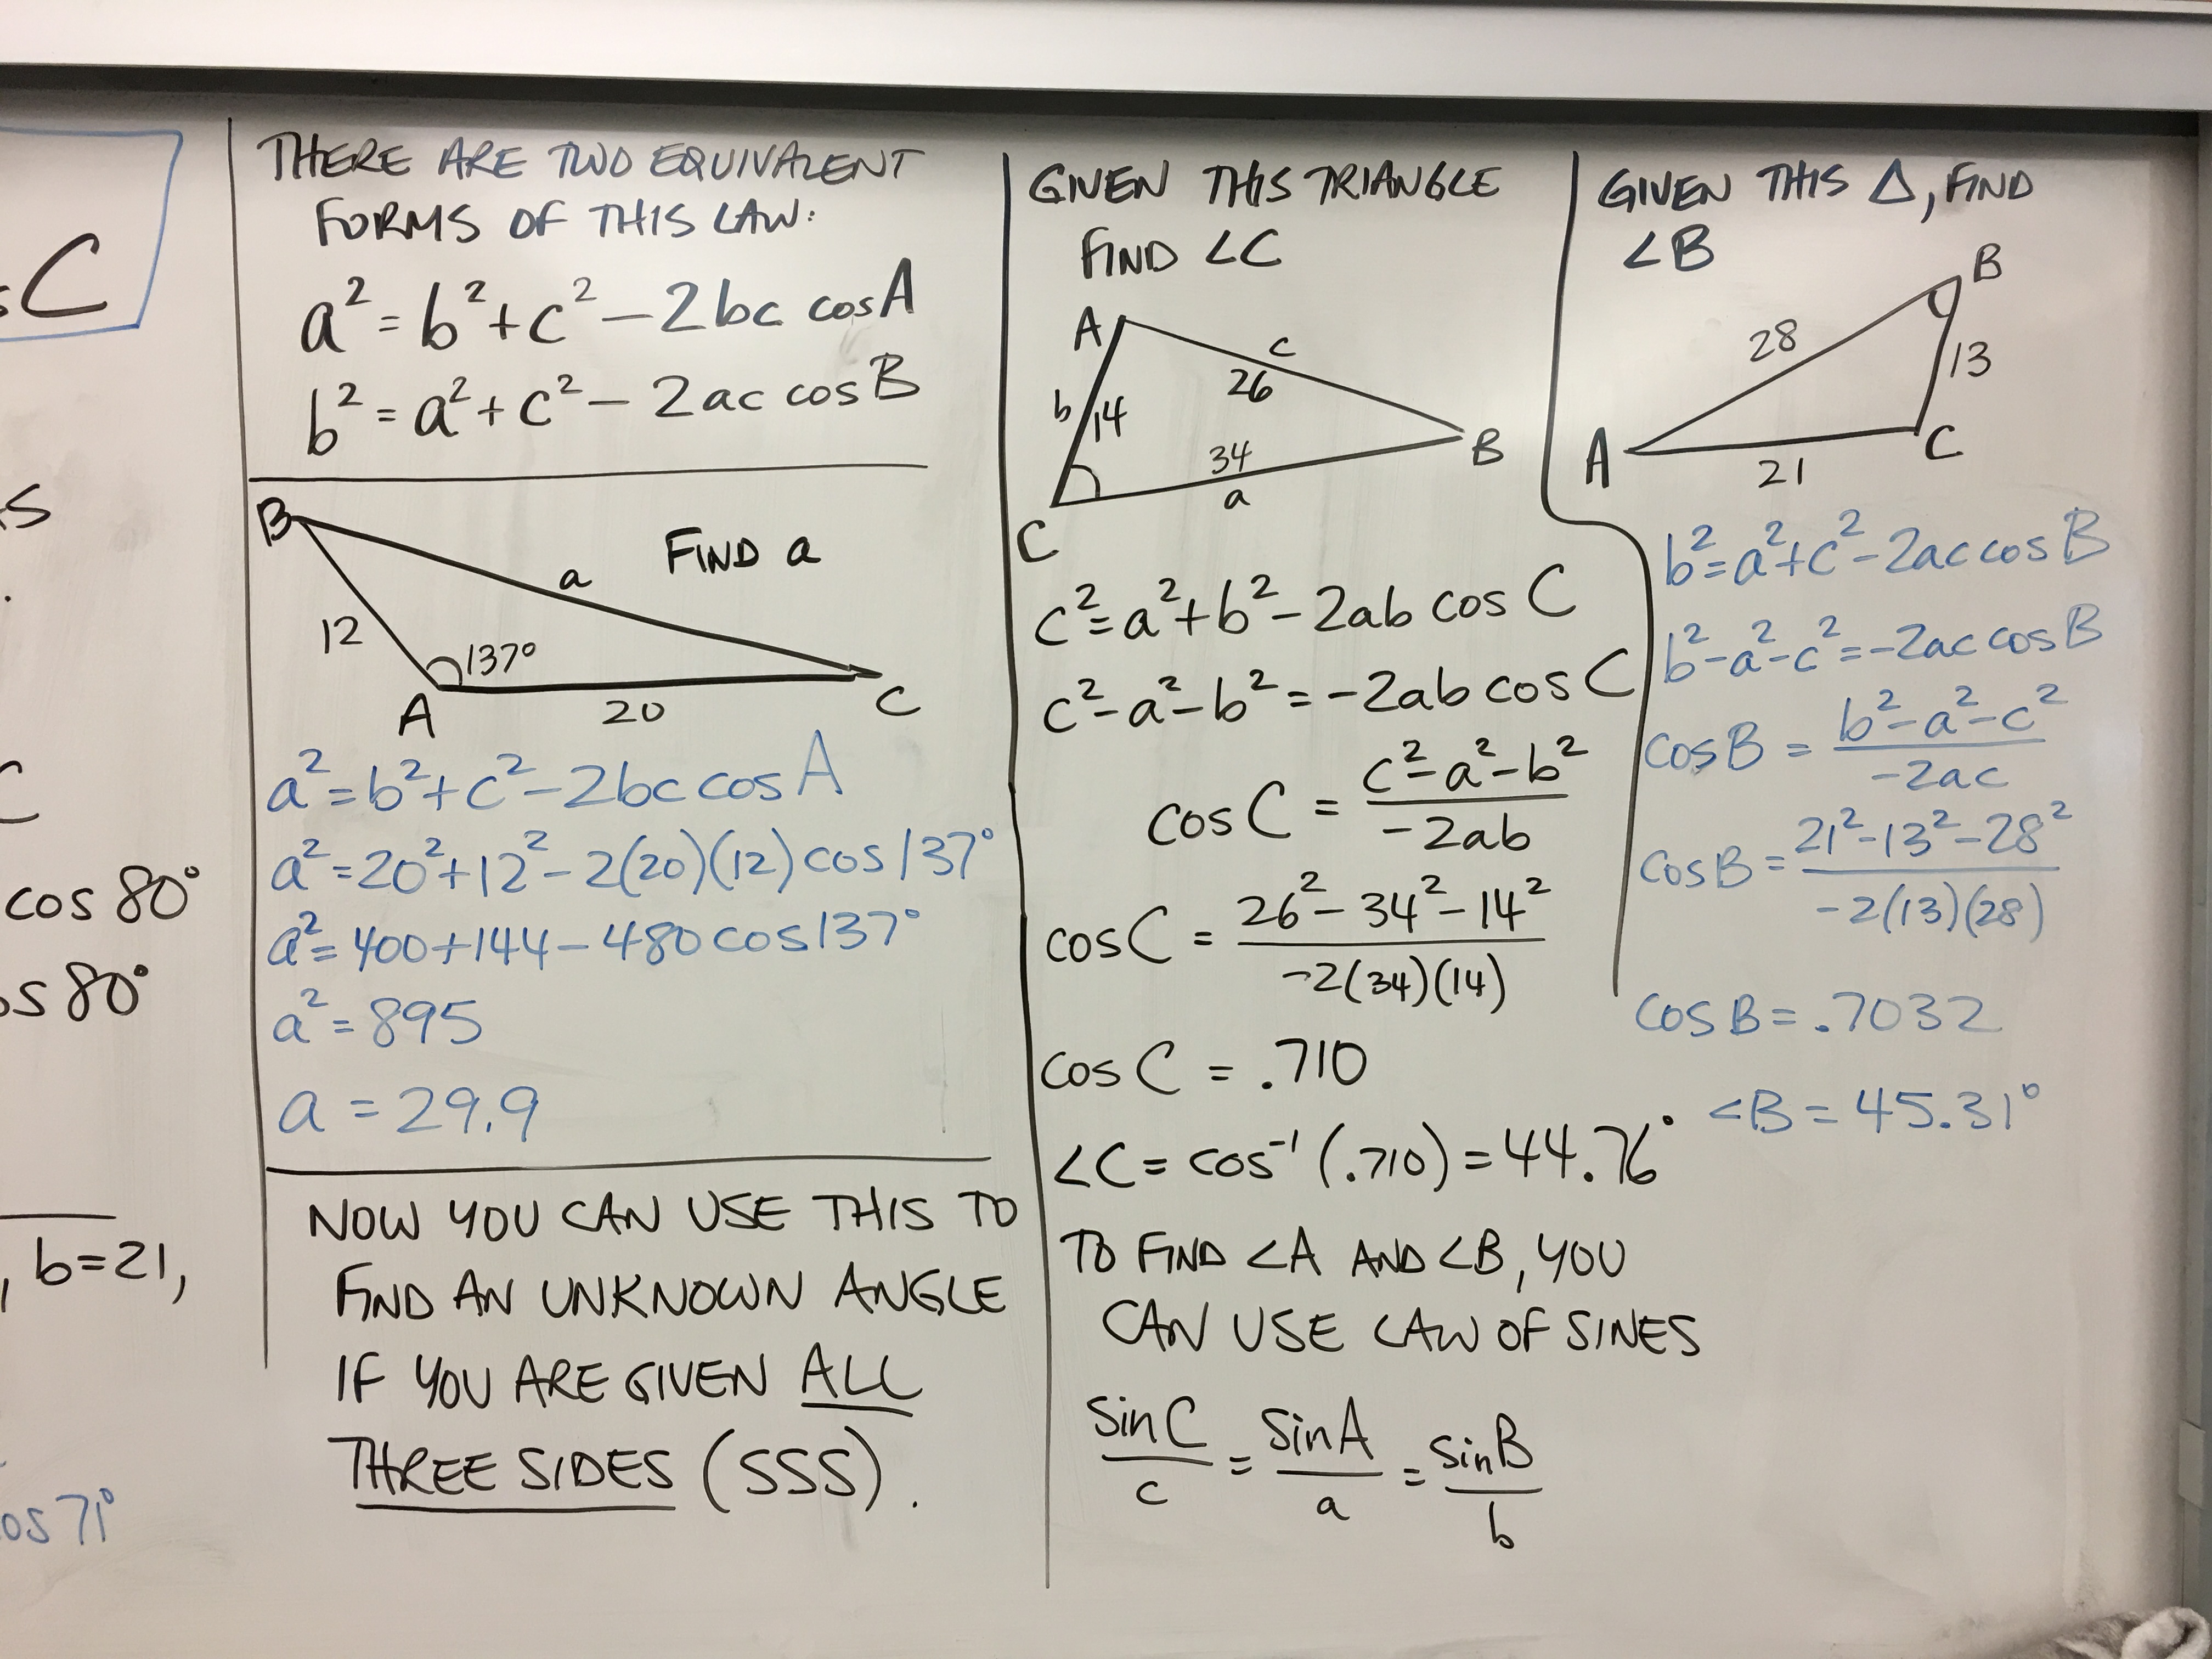 C
S
.
C
cos 80°
os 80°
, b=21,
os 71°
THERE ARE TWO EQUIVALENT
FORMS OF THIS LAW:
a² = b² + c² − 2bc cos A
b² = a² + c² − 2ac cos B
B
FIND a
a
12
137°
A
20
C
a² = b² + c² − 2bc cos A
a² = 20² + 12² − 2(20)(12) cos 137°
a² = 400 + 144 − 480 cos 137°
a² = 895
a = 29.9
NOW YOU CAN USE THIS TO
FIND AN UNKNOWN ANGLE
IF YOU ARE GIVEN ALL
THREE SIDES (SSS).
GIVEN THIS TRIANGLE
FIND ∠C
A
c
26
b 14
34
B
a
C
c² = a² + b² − 2ab cos C
c² − a² − b² = −2ab cos C
cos C = c² − a² − b² / −2ab
cos C = 26² − 34² − 14² / −2(34)(14)
cos C = .710
∠C = cos⁻¹ (.710) = 44.76°
TO FIND ∠A AND ∠B, YOU
CAN USE LAW OF SINES
sin C / c = sin A / a = sin B / b
GIVEN THIS Δ, FIND
∠B
B
28
13
A
C
21
b² = a² + c² − 2ac cos B
b² − a² − c² = −2ac cos B
cos B = b² − a² − c² / −2ac
cos B = 21² − 13² − 28² / −2(13)(28)
cos B = .7032
∠B = 45.31°